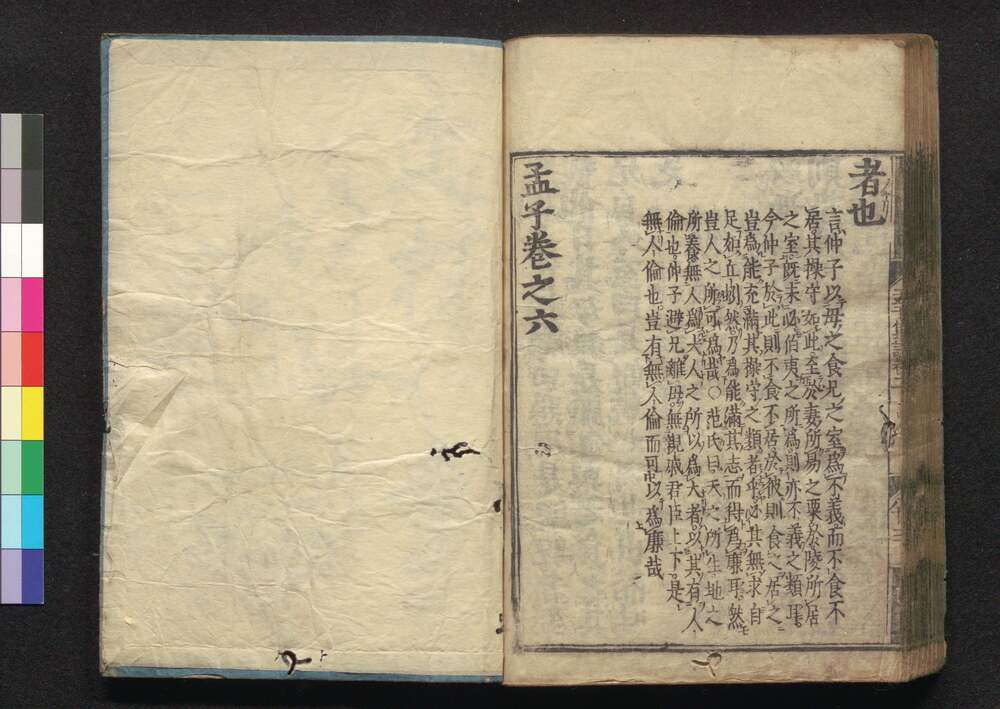 者也
言仲子以母之食兄之室爲不義而不食不
居其操守如此至於妻所易之粟於陵所居
之室既未必伯夷之所爲則亦不義之類耳
今仲子於此則不食不居於彼則食之居之
豈爲能充滿其操守之類者乎必其無求自
足如丘蚓然乃爲能滿其志而得爲廉耳然
豈人之所可爲哉○范氏曰天之所生地之
所養無人爲大人之所以爲大者以其有人
倫也仲子避兄離母無親戚君臣上下是
無人倫也豈有無人倫而可以爲廉哉
孟子卷之六